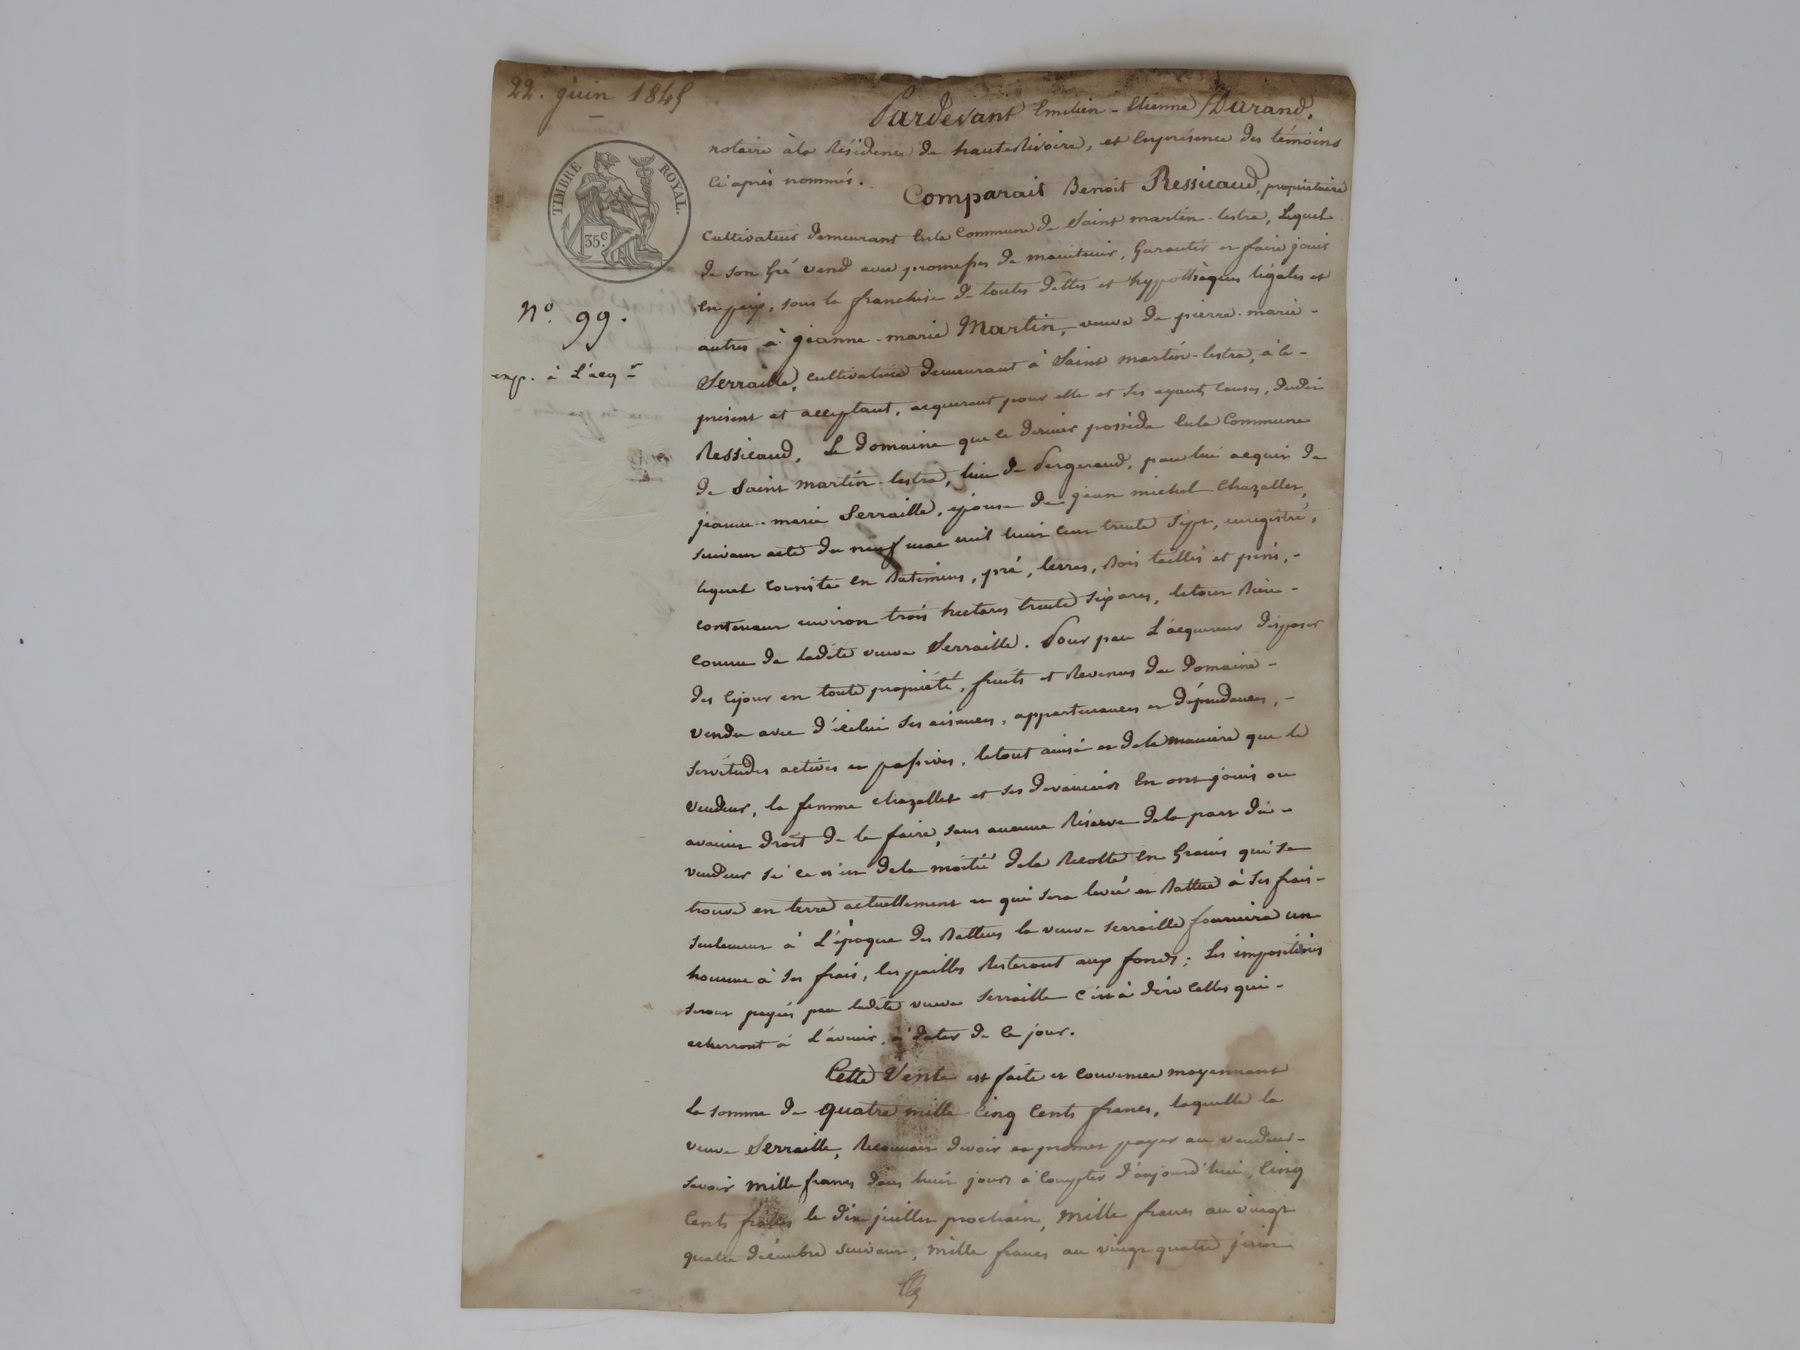 22. juin 1845
Pardevant Emilien-Etienne Durand,
notaire à la Résidence de hauterivoire, et enprésence des témoins
Ci après nommés.
Comparait Benoit Ressicaud, propriétaire
Cultivateur demeurant enla Commune de Saint martin-lestra, Lequel
de son Gré vend avec promesses de maintenir, Garantir et faire jouir
en paix, sous la franchise de toutes dettes et hypothèques légales et
autres à jeanne-marie Martin, veuve de pierre-marie-
Serraille, cultivatrice demeurant à Saint martin-lestra, à ce-
présent et acceptant, acquerant pour elle et ses ayant causes, dudit
Ressicaud, Le domaine que ce dernier possède enla Commune
de Saint martin-lestra, lieu de Vergeraud, par lui acquis de
jeanne-marie Serraille, épouse de jean michel Chazallet,
suivant acte du neuf mai mil huit cent trente sept, enregistré,
lequel consiste en Batimens, pré, terres, Bois taillis et pins,-
contenant environ trois hectares trente six ares, letout bien-
connu de ladite veuve Serraille. Pour par L'acquereur disposer
dès cejour en toute propriété, fruits et Revenus du domaine-
vendu avec d'icelui ses aisances, appartenances et dépendances,-
servitudes actives et passives, letout ainsi et dela manière que le
vendeur, la femme chazallet et ses devanciers en ont joui ou
avaient droit de le faire, sans aucune Réserve dela part du-
vendeur si ce n'est dela moitié dela Recolte en Grains qui se
trouve en terre actuellement et qui sera levée et Battue à ses frais-
seulement à L'époque des Battues la veuve serraille fournira un
homme à ses frais, les pailles Resteront aux fonds; Les impositions
seront payées par ladite veuve Serraille c'est à dire celles qui-
echerront à L'avenir, à dater de ce jour.
Cette Vente est faite et convenue moyennant
la somme de quatre mille Cinq Cents francs, laquelle la
veuve Serraille, Reconnait devoir et promet payer au vendeur-
savoir mille francs dans huit jours à compter d'aujourd'hui, Cinq
Cents francs le dix juillet prochain, mille francs au vingt
quatre décembre suivant, mille francs au vingt quatre juin
TIMBRE ROYAL.
35c.
No. 99.
exp. à L'acqr